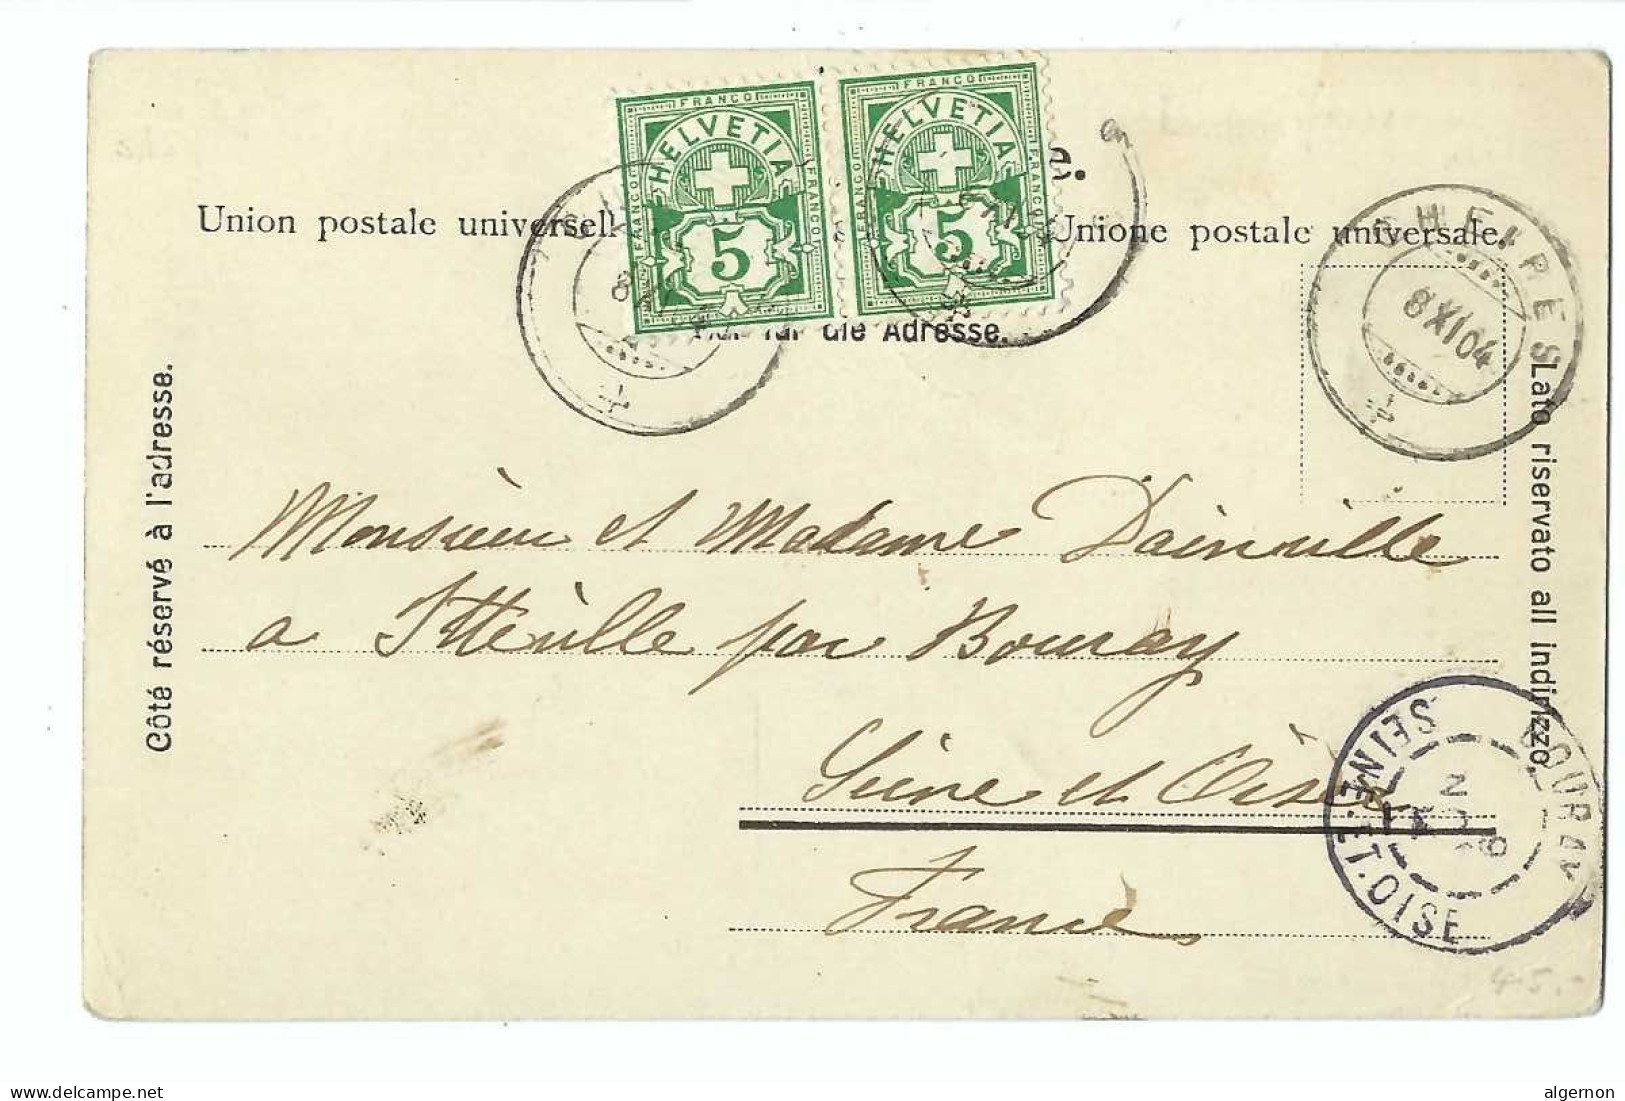 FRANCO
HELVETIA
FRANCO
FRANCO
5
FRANCO
HELVETIA
FRANCO
FRANCO
5
Union postale universell
Unione postale universale.
für die Adresse.
CHEIRES
8 XI 04
Côté réservé à l'adresse.
Lato riservato all indirizzo.
Monsieur et Madame Dainville
a Itteville par Bouray
Seine et Oise
France
BOURAY
SEINE-ET-OISE
9
NOV
45.-
delcampe.net
algernon